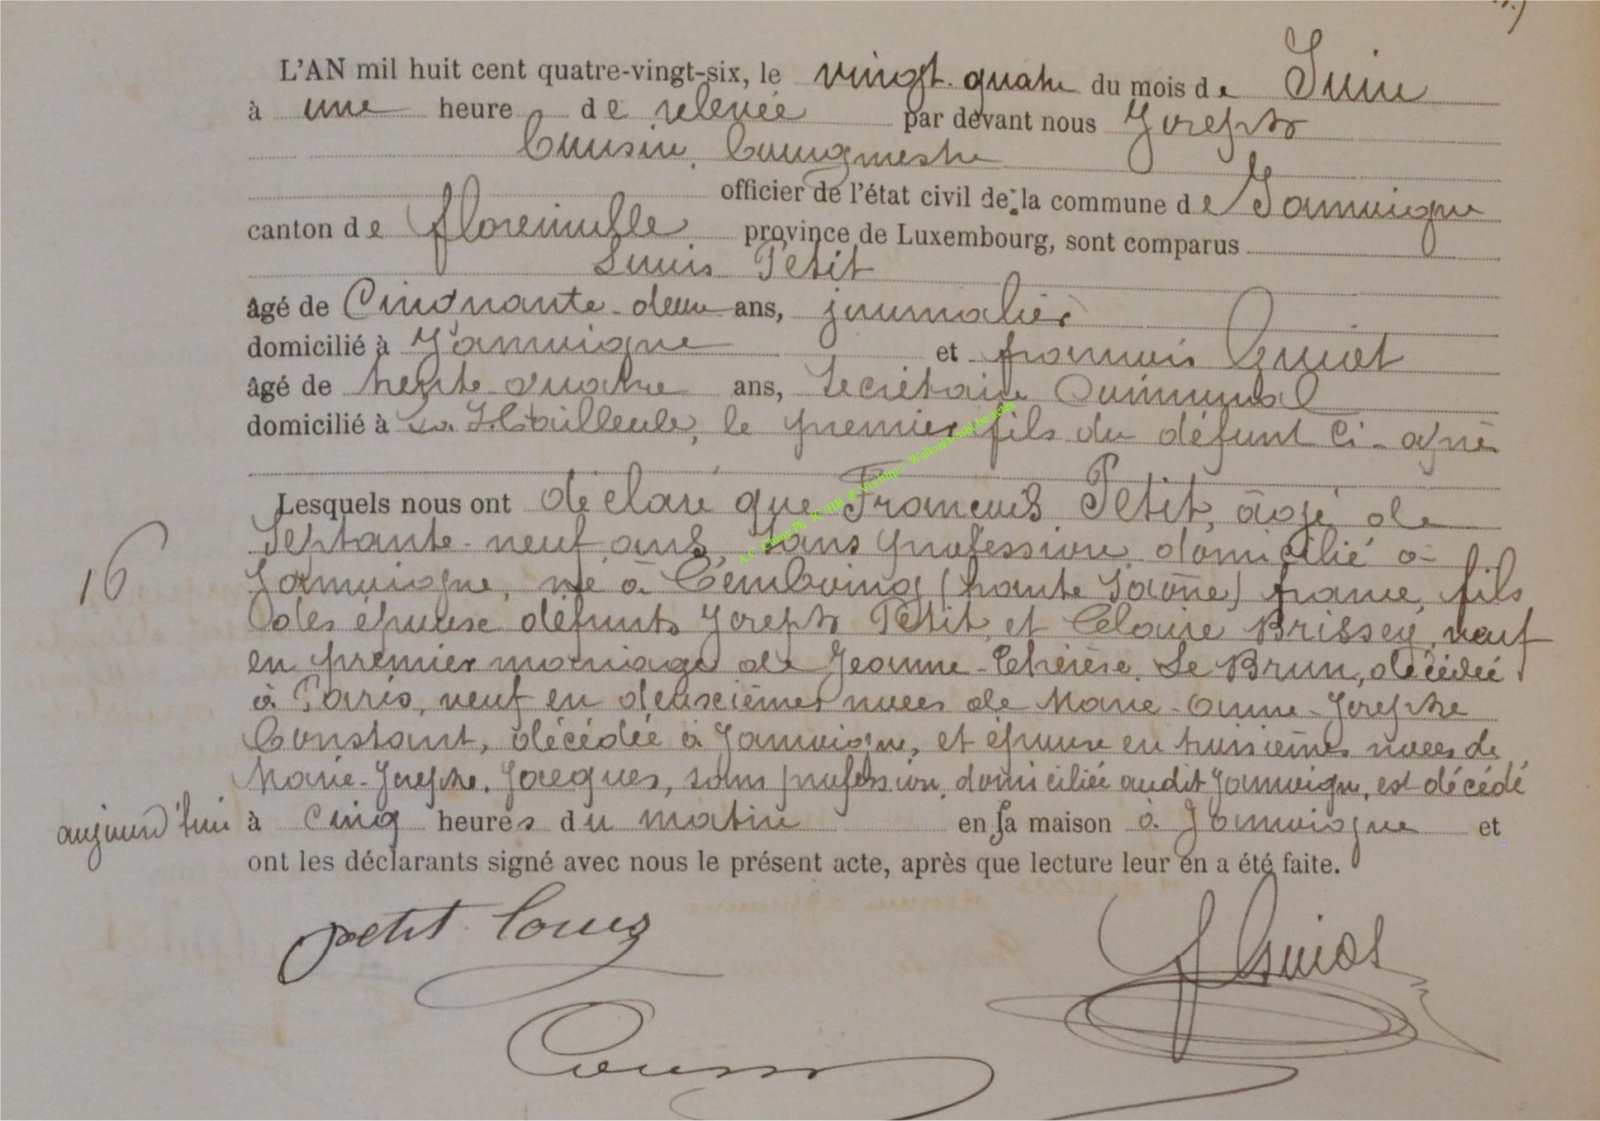 L'AN mil huit cent quatre-vingt-six, le vingt quatre du mois de Juin
à une heure de relevée par devant nous Joseph
Cousin, bourgmestre
officier de l'état civil de la commune de Jamoigne
canton de florenville province de Luxembourg, sont comparus
Louis Petit
âgé de Cinquante-deux ans, journalier
domicilié à Jamoigne et françois Guiot
âgé de trente quatre ans, Secrétaire Communal
domicilié à le premier fils du défunt ci-après
Lesquels nous ont déclaré que François Petit, âgé de
16
Septante-neuf ans, sans profession, domicilié à
Jamoigne, né à Cemboing (haute Saône) france, fils
des époux défunts Joseph Petit et Claire Brissey, veuf
en premier mariage de Jeanne-Thérèse Le Brun, décédée
à Paris, veuf en deuxièmes noces de Marie-Anne-Josephe
Constant, décédée à Jamoigne, et époux en troisièmes noces de
Marie-Josephe Jacques, sans profession, domiciliée audit Jamoigne, est décédé
aujourd'hui à cinq heures du matin en sa maison à Jamoigne et
ont les déclarants signé avec nous le présent acte, après que lecture leur en a été faite.
petit Louis
f Guiot
Cousin